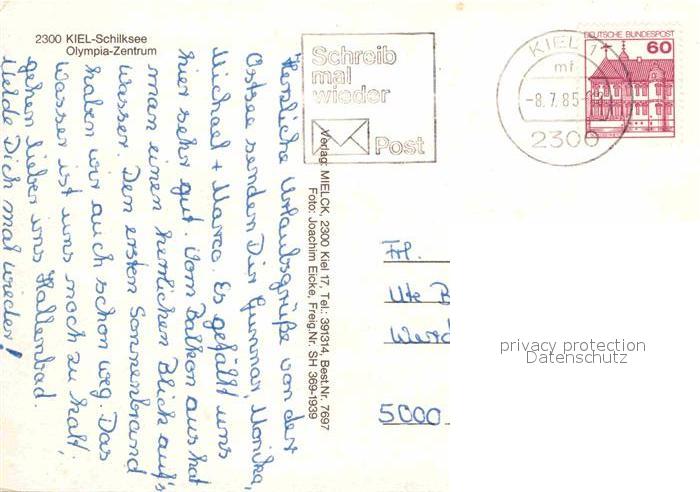 2300 KIEL-Schilksee
Olympia-Zentrum
Schreib
mal
wieder
Post
KIEL 1
mf
-8.7.85-
2300
DEUTSCHE BUNDESPOST
60
Herzliche Urlaubsgrüße von der
Ostsee senden Dir Gunnar, Monika,
Michael + Marco. Es gefällt uns
hier sehr gut. Vom Balkon aus hat
man einen herrlichen Blick auf's
Wasser. Den ersten Sonnenbrand
haben wir auch schon weg. Das
Wasser ist uns noch zu kalt,
gehen lieber ins Hallenbad.
Melde Dich mal wieder!
Verlag: MIELCK, 2300 Kiel 17, Tel.: 391314, Best.Nr. 7697
Foto: Joachim Eicke, Freig.Nr. SH 369-1939
Frl.
Ute B
5000
privacy protection
Datenschutz